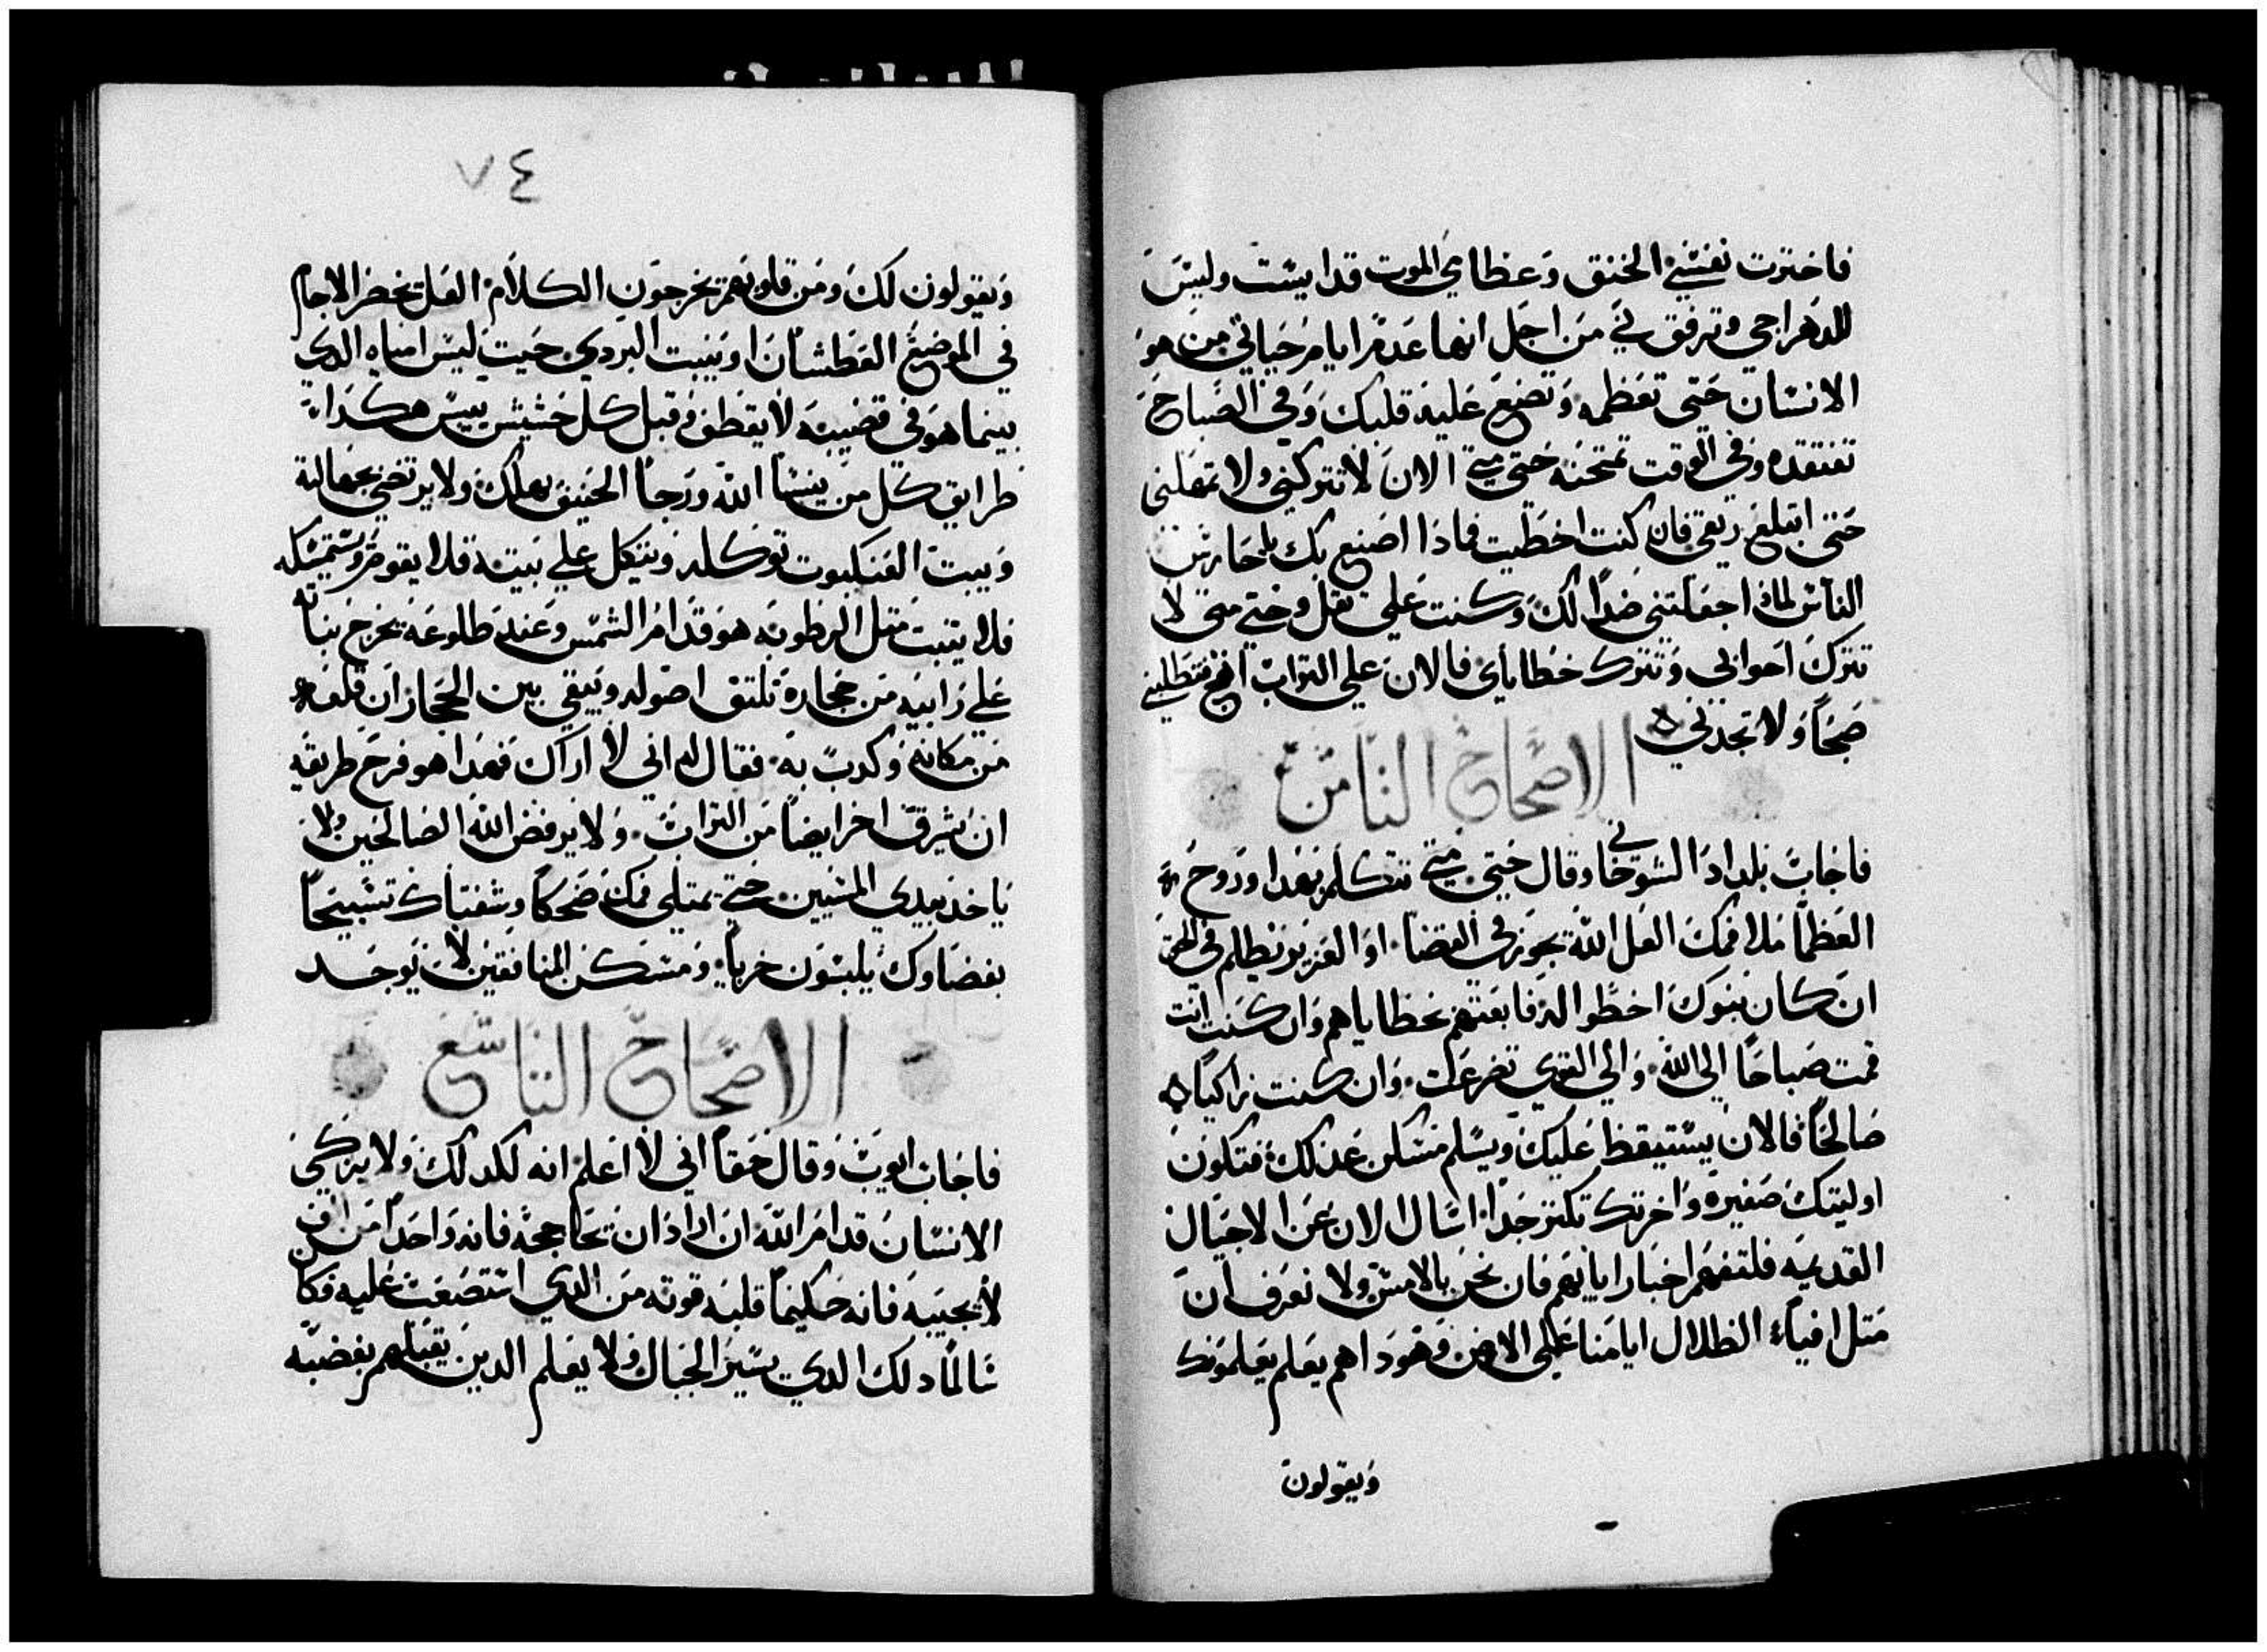 فاختزت نفسي الخنق وعظامي الموت قد ايست وليس
للدهر احي وترفق بي من اجل انها عدم ايام حياتي من هو
الانسان حتى تعظمه وتضع عليه قلبك وفي الصباح
تفتقده وفي الوقت تمتحنه حتى متي الان لا تتركني ولا تمهلني
حتى ابتلع ريقي فان كنت اخطيت فماذا اصنع بك يا حارس
الناس لماذا جعلتني ضدا لك وكنت علي تقل وحتي متى لا
تترك احوابي وتترك خطاياي فالان علي التراب اضجع فتطلبني
صبحا ولا تجدني
الاصحاح الثامن
فاجاب بلداد الشوخاني وقال حتي متي تتكلم بهدا وروح
العظما ملا فمك العل الله يجوز في القضا او العزيز يظلم في الحق
ان كان بنوك اخطوا له فابعتهم بخطاياهم وان كنت انت
قمت صباحا الى الله والي القوي تضرعت وان كنت زاكيا
صالحا فالان يستيقظ عليك ويسلم مسكن عدلك فتكون
اوليتك صغيره واخرتك تكتر جدا اسال الان عن الاجيال
القديمه فلتفهم اخبار ابايهم فان نحن بالامس ولا نعرف ان
متل افياء الظلال ايامنا علي الارض وهودا هم يعلم يعلمونك
ويقولون
٧٤
ويقولون لك ومن قلوبهم يخرجون الكلام العل يخضر الاجام
في الموضع العطشان او ينبت البردي حيت ليس امياه الدي
بينما هو في قضيبه لا يقطف قبل كل حشيش ييبس هكدا
طرايق كل من ينسا الله ورجا الحنيف يهلك ولا يرتضي بجهالته
وبيت العنكبوت توكله ويتكل علي بيته فلا يقوم ويستمسكه
فلا يتبت متل الرطوبه هو قدام الشمس وعند طلوعه يخرج نباته
علي رابيه من حجاره تلتف اصوله ويبقي بين الحجاز ان قلعه
من مكانه وكدب به فقال له اني لا اراك فهدا هو فرح طريقه
ان يشرق اخر ايضا من التراب ولا يرفض الله الصالحين ولا
ياخد بيدي المسيين حتي يمتلي فمك ضحكا وشفتاك تسبيحا
بغضاوك يلبسون خزيا ومسكن المنافقين لا يوجد
الاصحاح التاسع
فاجاب ايوب وقال حقا اني لا اعلم انه لكدلك ولا يزكي
الانسان قدام الله ان اراد ان يحاججه فانه واحدا من الف
لا يجيبه فانه حكيما قلبه قوته من الدي استصعب عليه فكان
سالما دلك الدي يسير الجبال ولا يعلم الدين يقبلهم بغضبه